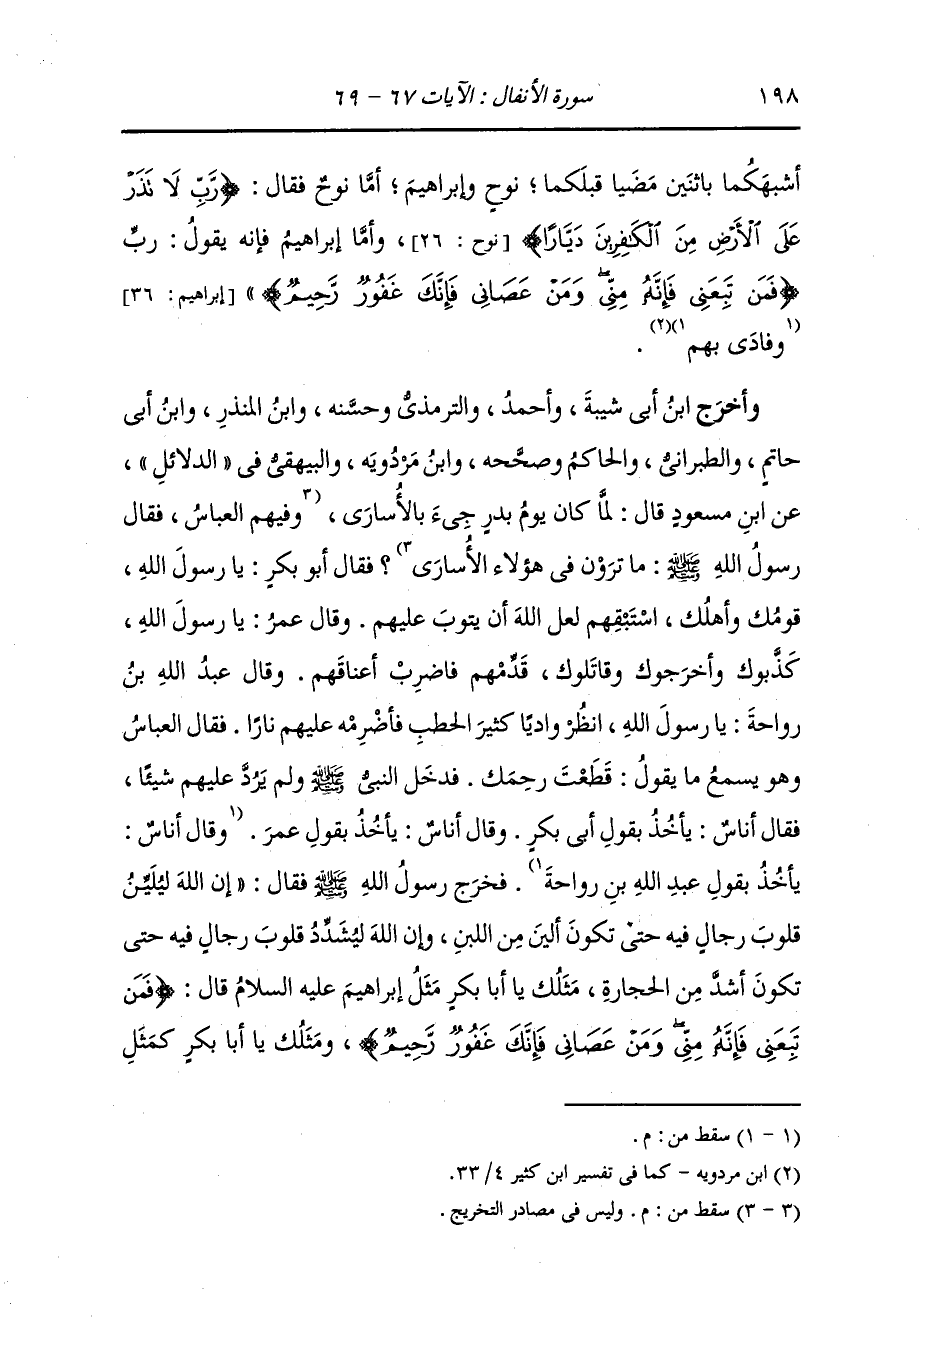 ١٩٨ سورة الأنفال : الآيات ٦٧ - ٦٩
أشبهَكُما باثنَين مَضَيا قبلَكما ؛ نوحٍ وإبراهيمَ ؛ أمَّا نوحٌ فقال : ﴿رَّبِّ لَا نَذَرْ
عَلَى ٱلْأَرْضِ مِنَ ٱلْكَٰفِرِينَ دَيَّارًا﴾ [نوح : ٢٦] ، وأمَّا إبراهيمُ فإنه يقولُ : ربِّ
﴿فَمَن تَبِعَنِى فَإِنَّهُۥ مِنِّىۖ وَمَنْ عَصَانِى فَإِنَّكَ غَفُورٌ رَّحِيمٌ﴾ » [إبراهيم: ٣٦]
(١وفادَى بهم١)(٢) .
وأخرَج ابنُ أبى شيبةَ ، وأحمدُ ، والترمذىُّ وحسَّنه ، وابنُ المنذرِ ، وابنُ أبى
حاتمٍ ، والطبرانىُّ ، والحاكمُ وصحَّحه ، وابنُ مَرْدُويَه ، والبيهقىُّ فى « الدلائلِ » ،
عن ابنِ مسعودٍ قال : لمَّا كان يومُ بدرٍ جِىءَ بالأُسارَى ، (٣وفيهم العباسُ ، فقال
رسولُ اللهِ ﷺ : ما ترَوْن فى هؤلاء الأُسارَى٣) ؟ فقال أبو بكرٍ : يا رسولَ اللهِ ،
قومُك وأهلُك ، اسْتَبْقِهم لعل اللهَ أن يتوبَ عليهم . وقال عمرُ : يا رسولَ اللهِ ،
كَذَّبوك وأخرَجوك وقاتَلوك ، قَدِّمْهم فاضرِبْ أعناقَهم . وقال عبدُ اللهِ بنُ
رواحةَ : يا رسولَ اللهِ ، انظُرْ واديًا كثيرَ الحطبِ فأضْرِمْه عليهم نارًا . فقال العباسُ
وهو يسمعُ ما يقولُ : قَطَعْتَ رحِمَك . فدخَل النبىُّ ﷺ ولم يَرُدَّ عليهم شيئًا ،
فقال أناسٌ : يأخُذُ بقولِ أبى بكرٍ . وقال أناسٌ : يأخُذُ بقولِ عمرَ . (١وقال أناسٌ :
يأخُذُ بقولِ عبدِ اللهِ بنِ رواحةَ١) . فخرَج رسولُ اللهِ ﷺ فقال : « إن اللهَ ليُلَيِّنُ
قلوبَ رجالٍ فيه حتى تكونَ ألينَ مِن اللبنِ ، وإن اللهَ ليُشَدِّدُ قلوبَ رجالٍ فيه حتى
تكونَ أشدَّ مِن الحجارةِ ، مَثَلُك يا أبا بكرٍ مَثَلُ إبراهيمَ عليه السلامُ قال : ﴿فَمَن
تَبِعَنِى فَإِنَّهُۥ مِنِّىۖ وَمَنْ عَصَانِى فَإِنَّكَ غَفُورٌ رَّحِيمٌ﴾ ، ومَثَلُك يا أبا بكرٍ كمَثَلِ
(١ - ١) سقط من : م .
(٢) ابن مردويه - كما فى تفسير ابن كثير ٤ /٣٣.
(٣ - ٣) سقط من : م . وليس فى مصادر التخريج .